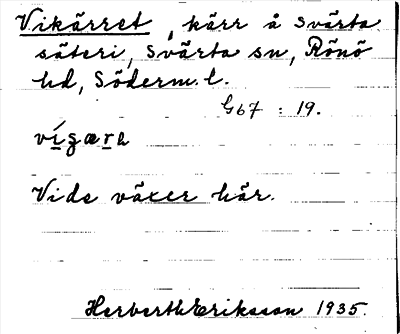 Vikärret, kärr å Svärta
säteri, Svärta sn, Rönö
hd, Söderm. l.
G67 : 19.
Vide växer här.
Herbert Eriksson 1935.